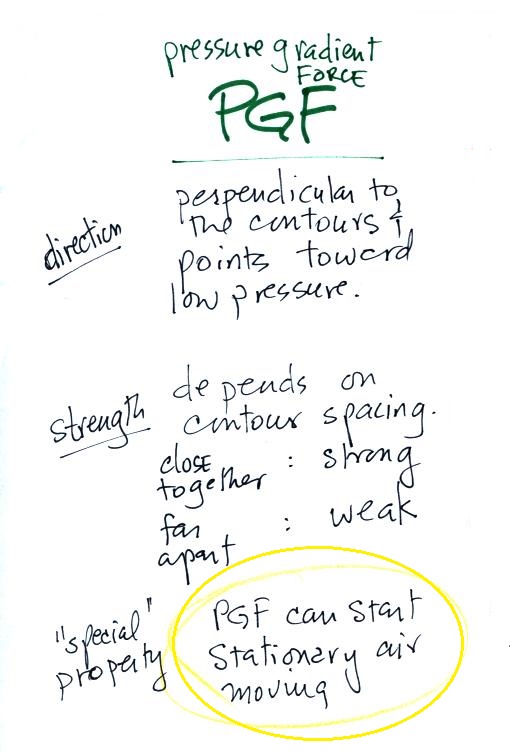 pressure gradient
FORCE
PGF
direction
perpendicular to
the contours &
points toward
low pressure.
strength
depends on
contour spacing.
close
together : strong
far
apart : weak
"special"
property
PGF can start
stationary air
moving